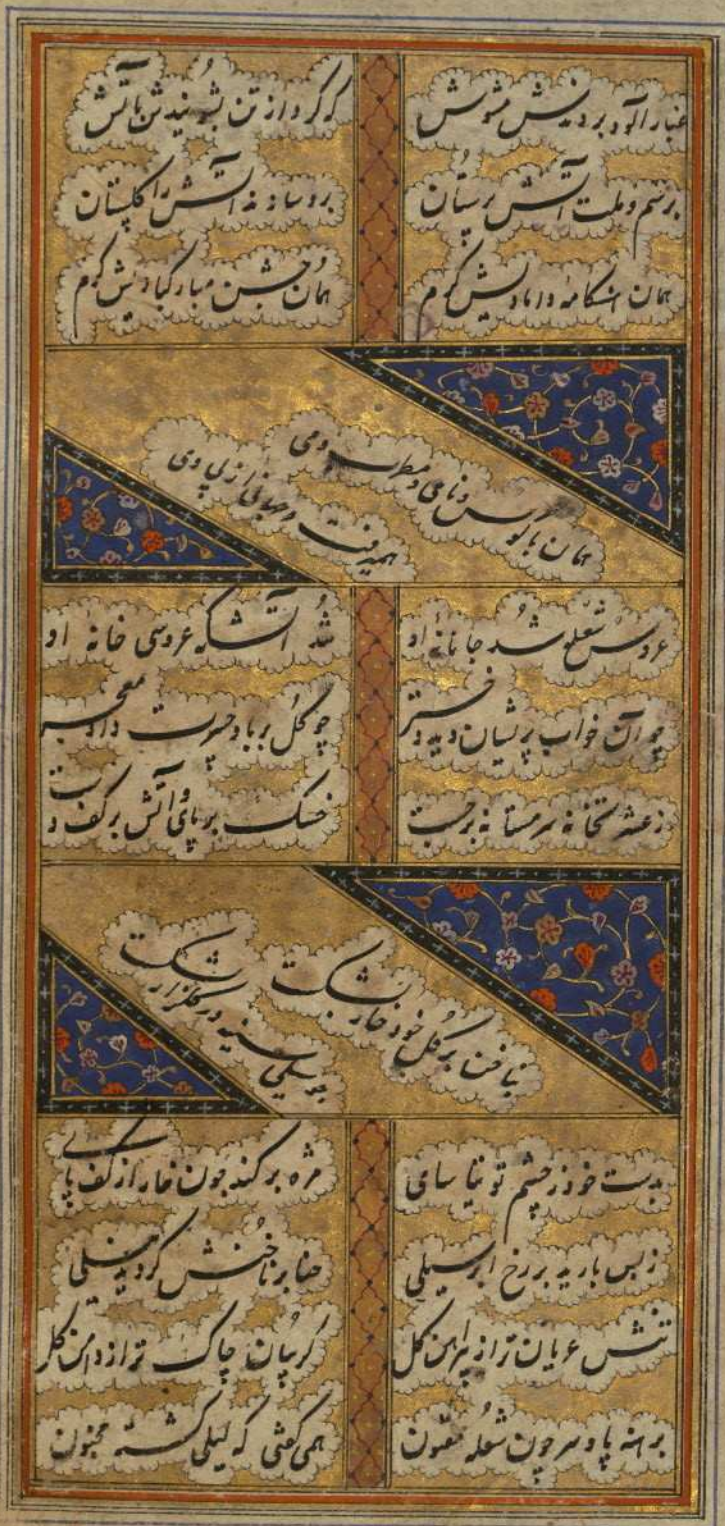 غبار آلود بردندش مشوش
که گرد از تن بشویندش بآتش
برسم و ملت آتش پرستان
برو سازند آتش را گلستان
همان هنگامه دامادیش گرم
همان جشن مبارکبادیش گرم
همان با کوس و نای و مطرب و می
همیرفت و جهانی از پی وی
عروس شعله شد جانانه او
شد آتشگه عروسی خانه او
چو آن خواب پریشان دید دختر
چو گل بر باد حسرت داد معجر
ز عشرتخانه سرمستانه برجست
خسک بر پای و آتش بر کف دست
بناخن بر گل خود خار بشکست
بسیلی سینه در گلزار بشکست
بدست خود ز چشم توتیا سای
مژه برکند چون خار از کف پای
ز بس بارید بر رخ ابر سیلی
حنا بر ناخنش گردید نیلی
تنش عریان تر از پیراهن گل
گریبان چاک تر از دامن گل
برهنه پا و سر چون شعله مفتون
همی گفتی که لیلی گشته مجنون